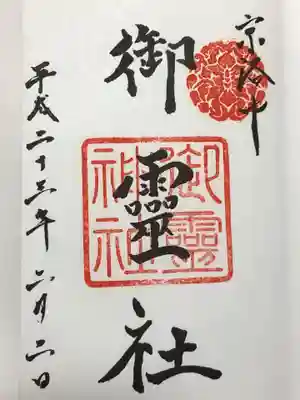 京洛中
御靈社
御靈
神社
平成二十三年六月六日